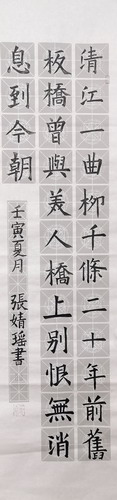 清江一曲柳千條二十年前舊
板橋曾與美人橋上別恨無消
息到今朝
壬寅夏月
張婧瑶書